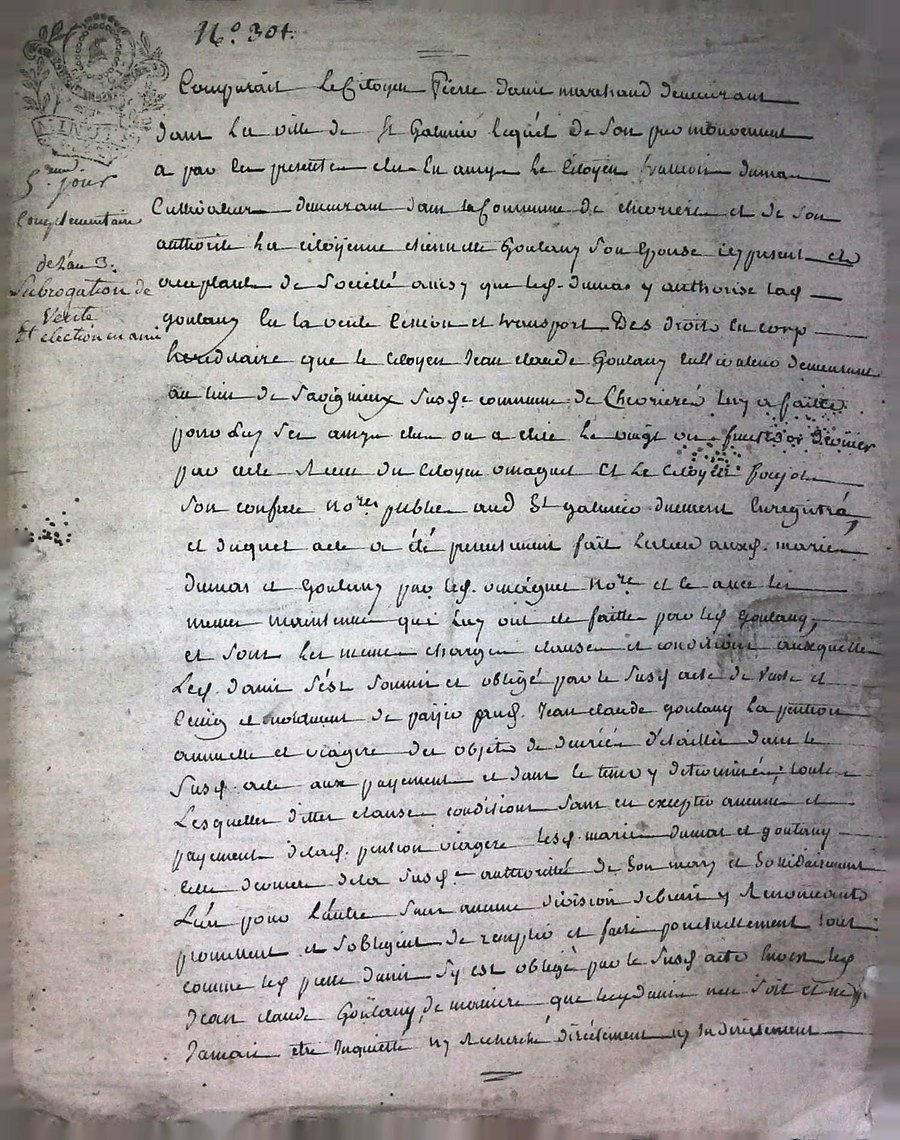 N.o 301.
5.eme jour
Complementaire
de L'an 3.
Subrogation de
Vente
Et élection en ami
Comparait Le Citoyen Pierre danis marchand demeurant
dans La ville de St Galmier lequel de son pro mouvement
a par les presentes élu En amy Le Citoyen francois dumas
Cultivateur demeurant dans la Commune de chevrieres et de son
authorité La citoÿenne Goutany son Epouse icy presents et
acceptants de Société amis y que led. dumas y authorise lad
goutany En la vente Cession et transport Des droits En corp
hereditaire que le citoyen Jean claude Goutany cultivateur demeurant
au lieu de Savigneux susd. commune de Chevrieres Luy a faitte
pour Luy ses amys élus ou a elire Le vingt un dernier
par acte Recu du Citoyen et Le Citoyen
son confrere No.res publics aud St galmier duement Enregistré
et duquel acte a été presentement fait Lecture auxd. mariés
dumas et Goutany par led. No.re et le avec les
meme maintenue qui Luy ont été faitte par led Goutany,
et sous les meme charges clauses et conditions auxquelles
Led. danis s'est soumis et obligé par le susd acte de Vente et
et notament de payer aud. Jean claude goutany La pention
annuelle et viagere des objets de denrées détaillés dans le
susd. acte aux payements et dans le tems y determinés, toutes
Lesquelles dittes clauses conditions sans en excepter aucune et
payement delad. pention viagere Lesd. mariés dumas et goutany
celle de la susd. authorité de son mary et Solidairement
L'un pour L'autre sans aucune division debiens y Renonceants
promettent et s'obligent de remplir et faire ponctuellement tout
comme led pierre danis s'y est obligé par le susd acte Envers led
Jean claude Goutany, de maniere que led danis n'en soit et ne
Jamais etre Inquietté ny Recherché directement ny Indirectement